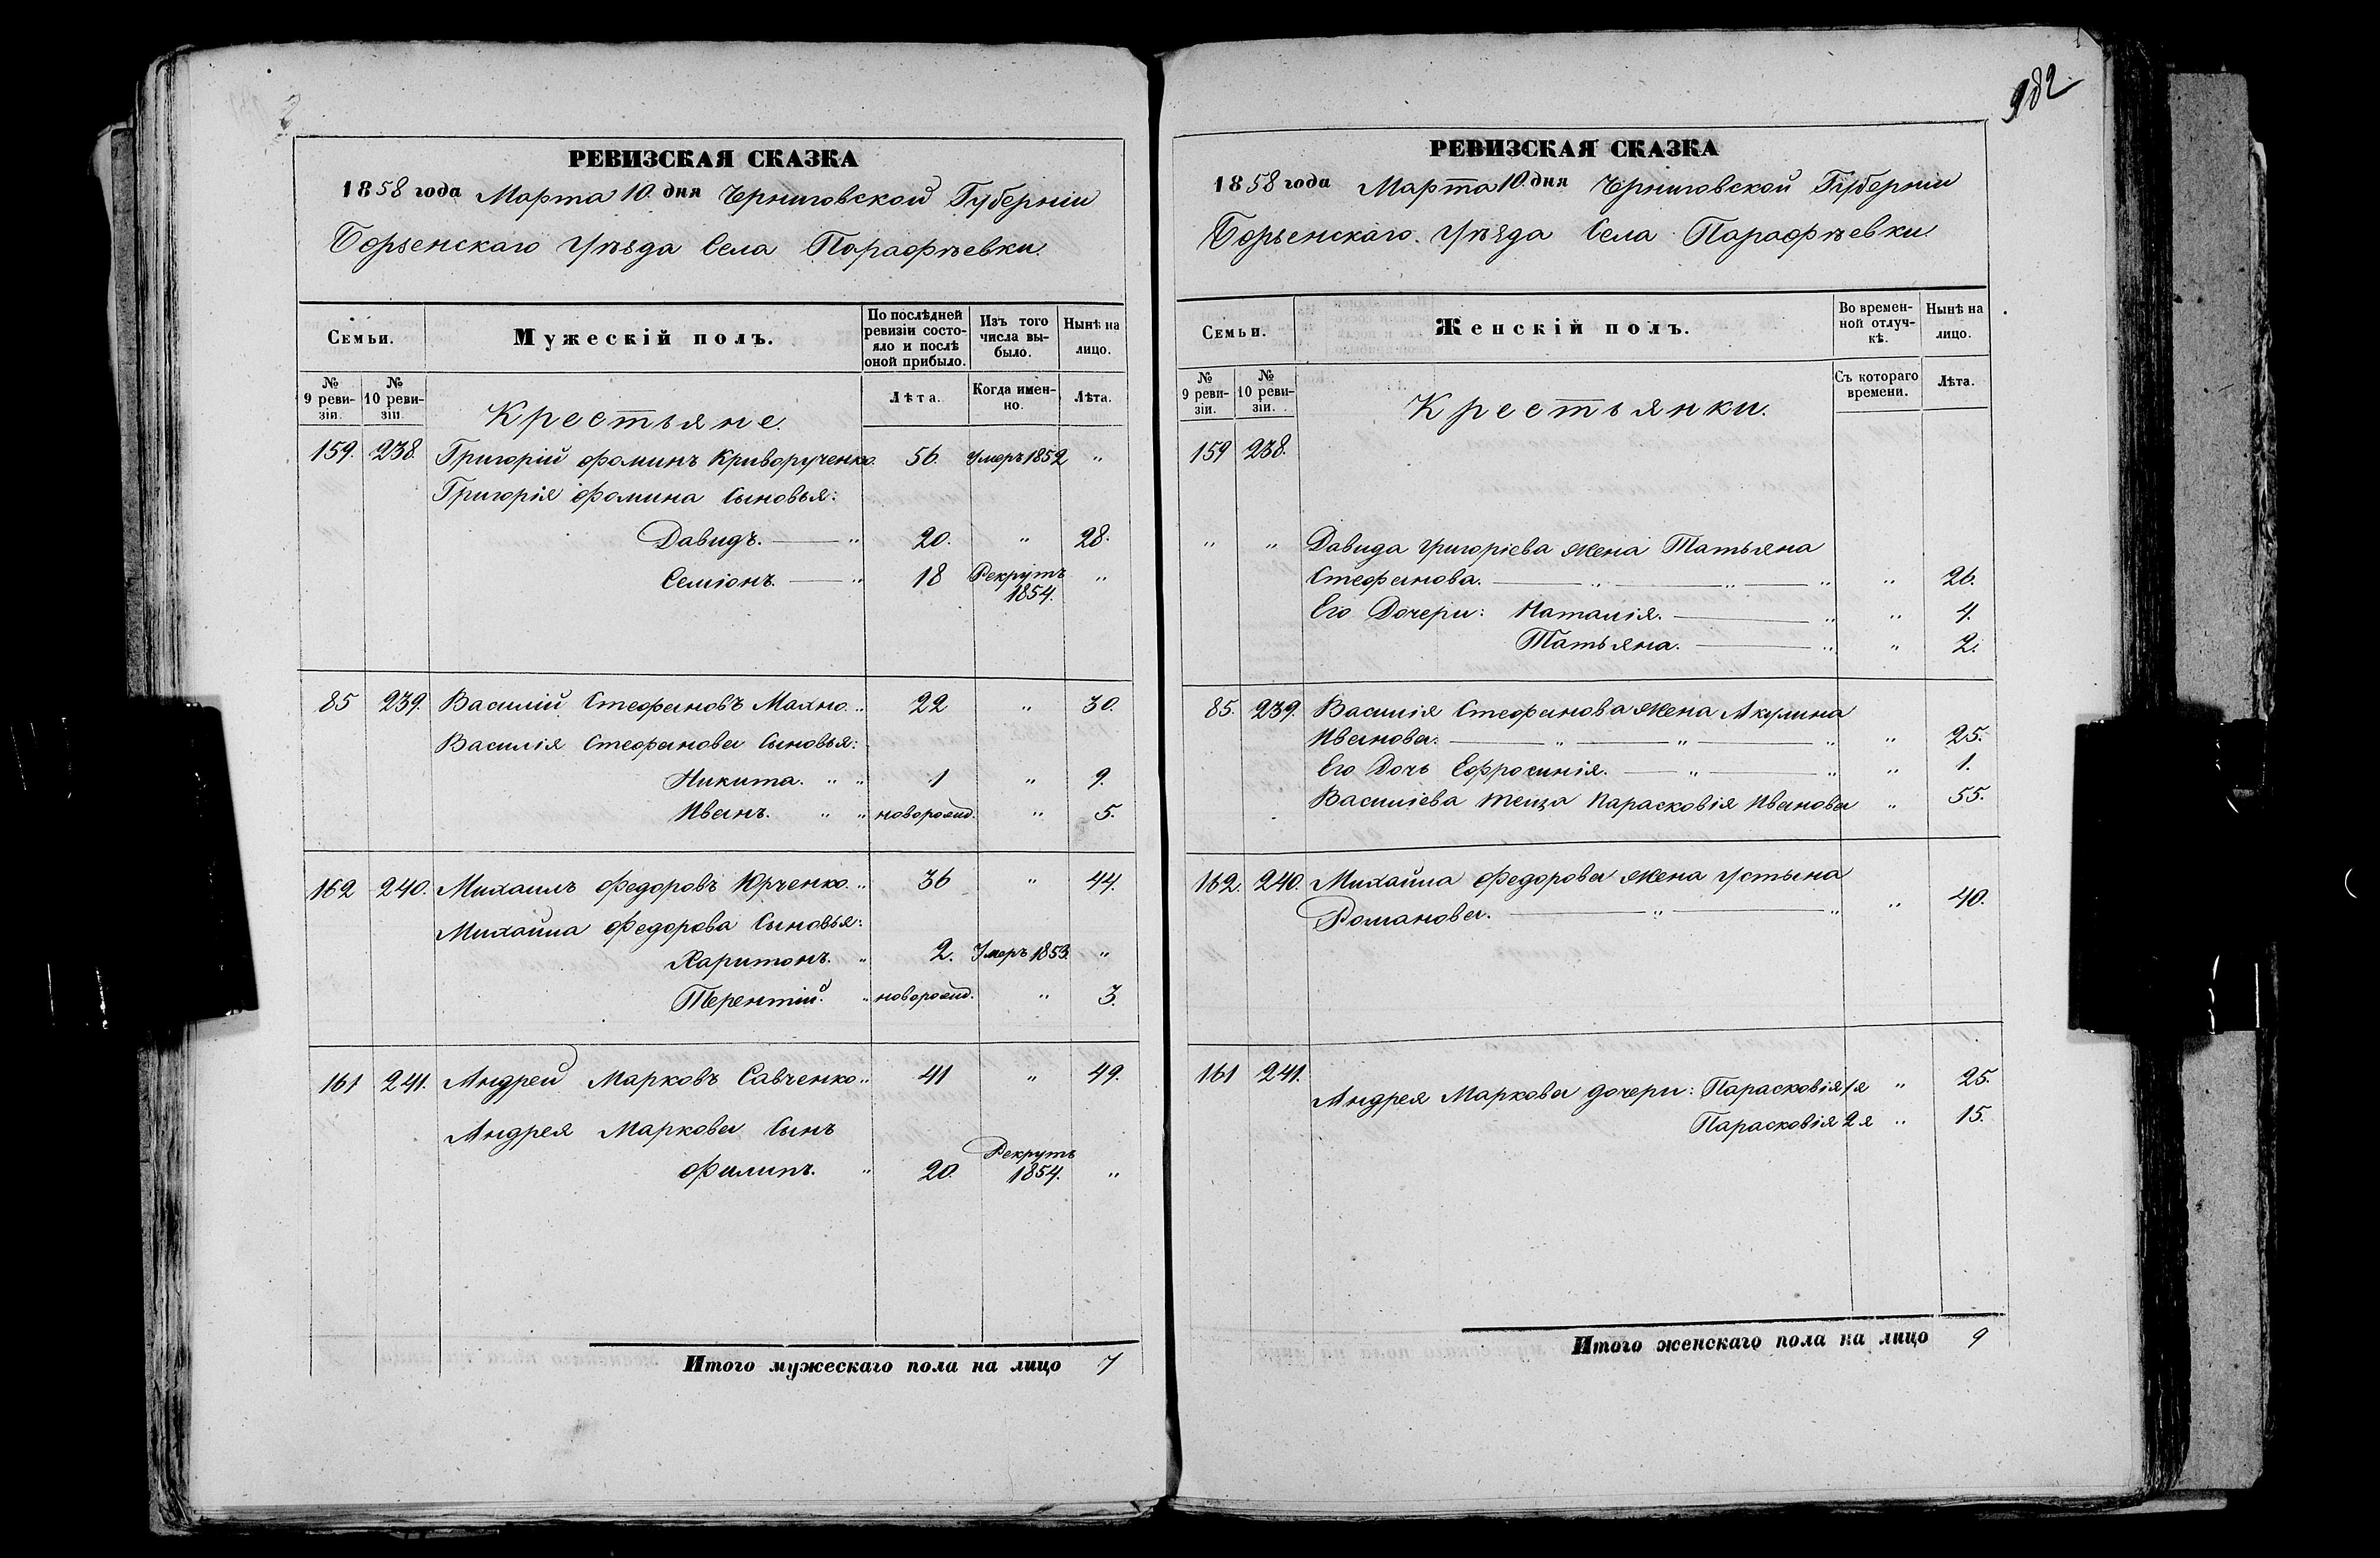 РЕВИЗСКАЯ СКАЗКА
1858 года Марта 10. дня Черниговской Губерніи
Борзенскаго Уѣзда Села Парафѣевки.
Семьи.
Мужескій полъ.
По послѣдней ревизіи состояло и послѣ оной прибыло.
Изъ того числа выбыло.
Нынѣ на лицо.
№ 9 ревизіи.
№ 10 ревизіи.
Лѣта.
Когда именно.
Лѣта.
Крестьяне.
159. 238. Григорій Фоминъ Криворученко. 56. Умеръ 1852 "
Григорія Фомина Сыновья:
Давидъ. — " 20. " 28.
Семіонъ. — " 18 Рекрутъ 1854. "
85 239. Василій Стефановъ Махно. " 22 " 30.
Василія Стефанова Сыновья:
Никита. " " 1 " 9.
Иванъ. " " новорожд. " 5.
162 240. Михаилъ Федоровъ Юрченко. " 36 " 44.
Михайла Федорова Сыновья:
Харитонъ. " 2. Умеръ 1853. "
Терентій. " новорожд. " 3.
161 241. Андрей Марковъ Савченко " 41 " 49.
Андрея Маркова Сынъ
Филипъ. " 20. Рекрутъ 1854. "
Итого мужескаго пола на лицо 7
982
РЕВИЗСКАЯ СКАЗКА
1858 года Марта 10. дня Черниговской Губерніи
Борзенскаго Уѣзда Села Парафѣевки.
Семьи.
Женскій полъ.
Во временной отлучкѣ.
Нынѣ на лицо.
№ 9 ревизіи.
№ 10 ревизіи.
Съ котораго времени.
Лѣта.
Крестьянки.
159 238.
" " Давида Григоріева жена Татьяна
Стефанова. — " — " — " " 26.
Его Дочери: Наталія. — " " 4.
Татьяна. — " " 2.
85. 239. Василія Стефанова жена Акулина
Иванова. — " — " — " " 25.
Его Дочь Ефросинія. — " — " " 1.
Василіева теща Парасковія Иванова " 55.
162. 240. Михайла Федорова жена Устына
Романова. — " — " " 40.
161 241.
Андрея Маркова дочери: Парасковія 1я " 25.
Парасковія 2я " 15.
Итого женскаго пола на лицо 9